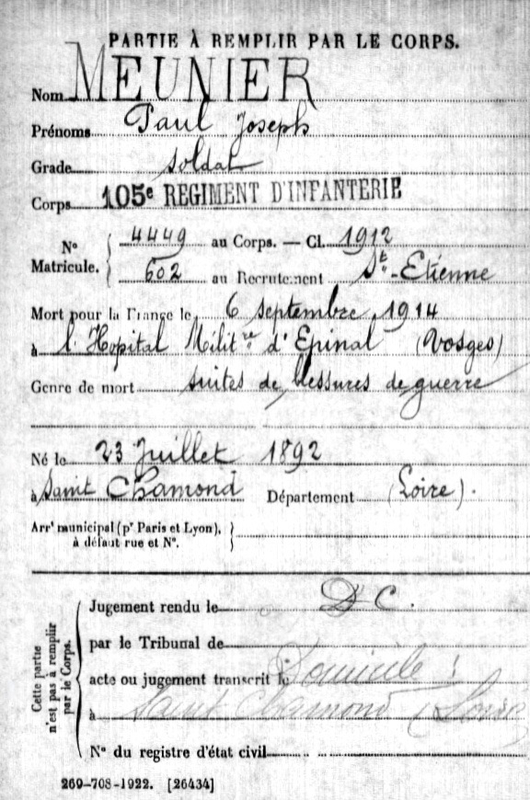 PARTIE À REMPLIR PAR LE CORPS.
Nom MEUNIER
Prénoms Paul Joseph
Grade soldat
Corps 105e REGIMENT D'INFANTERIE
N° Matricule. { 4449 au Corps. — Cl. 1912
602 au Recrutement St-Etienne
Mort pour la France le 6 septembre 1914
à l'Hopital Milit.re d'Epinal (Vosges)
Genre de mort suites de blessures de guerre
Né le 23 Juillet 1892
à Saint Chamond Département (Loire).
Arrt municipal (pr Paris et Lyon), }
à défaut rue et N°.
Cette partie n'est pas à remplir par le Corps.
Jugement rendu le D C.
par le Tribunal de
acte ou jugement transcrit le Domicile :
à Saint Chamond (Loire)
N° du registre d'état civil
269-708-1922. [26434]